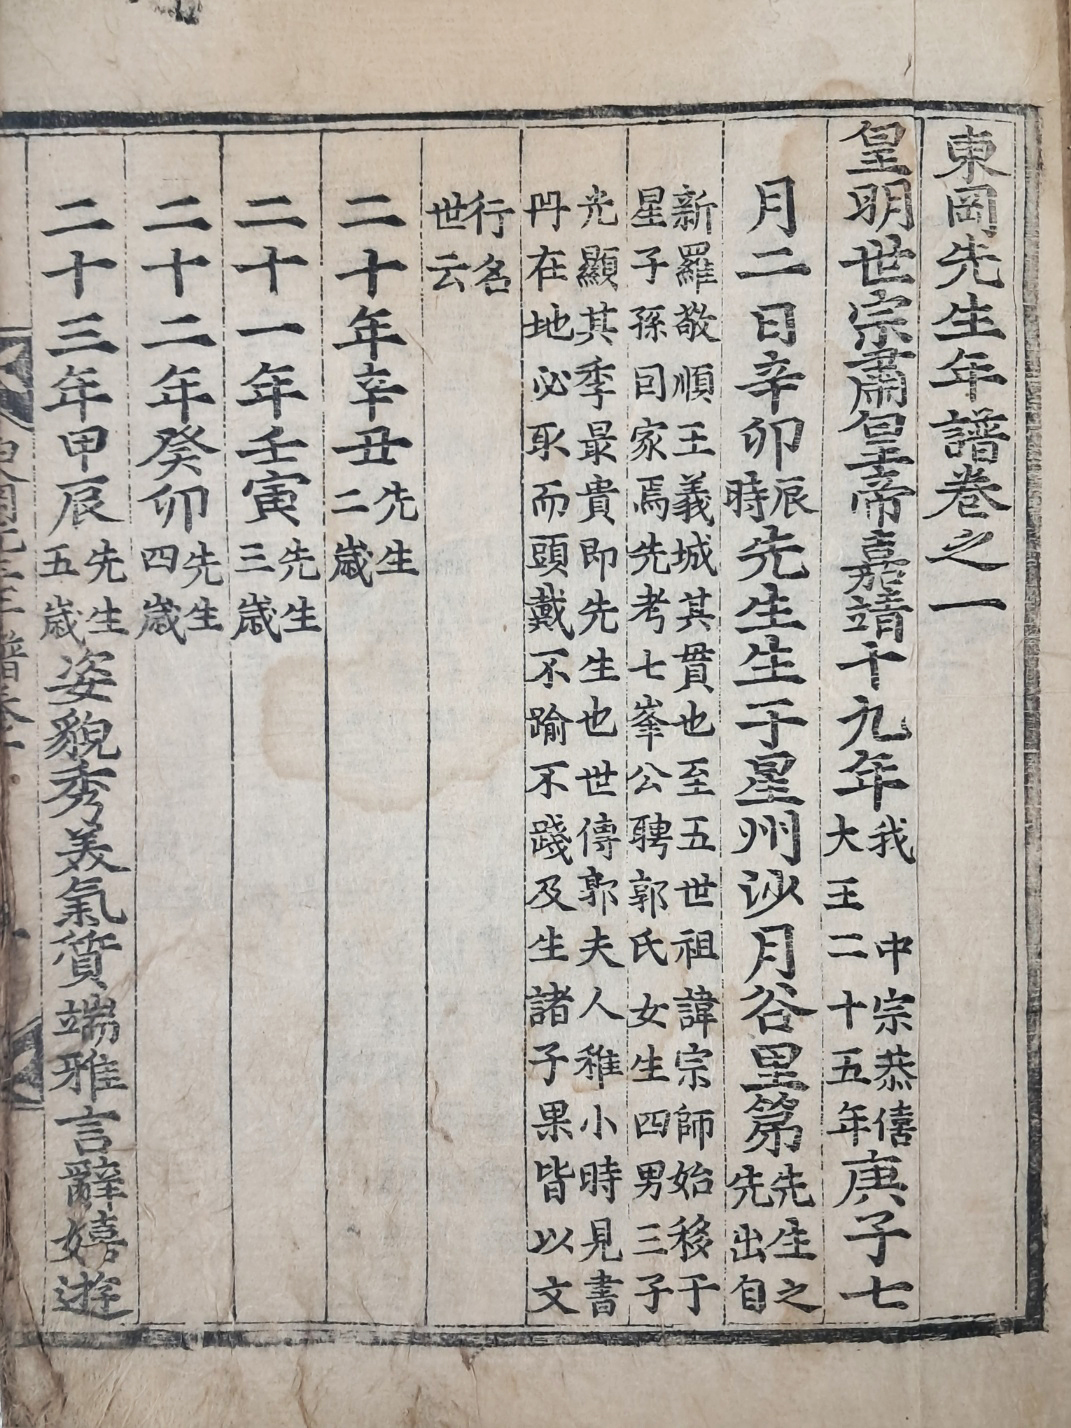 東岡先生年譜卷之一
皇明世宗肅皇帝嘉靖十九年我 中宗恭僖大王二十五年庚子七
月二日辛卯辰時先生生于星州沙月谷里第先生之先出自
新羅敬順王義城其貫也至五世祖諱宗師始移于
星子孫因家焉先考七峯公聘郭氏女生四男三子
光顯其季最貴即先生也世傳郭夫人稚小時見書
冊在地必取而頭戴不踰不踐及生諸子果皆以文
行名
世云
二十年辛丑先生二歲
二十一年壬寅先生三歲
二十二年癸卯先生四歲
二十三年甲辰先生五歲姿貌秀美氣質端雅言辭嬉遊